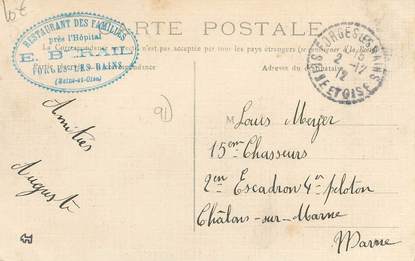 10€
CARTE POSTALE
RESTAURANT DES FAMILLES
près l'Hôpital
E. B
FORGES-LES-BAINS
(Seine-et-Oise)
La Correspondance au n'est pas acceptée par tous les pays étrangers (se renseigner à la Poste)
Correspondance
Adresse du destinataire
FORGES LES BAINS
SEINE ET OISE
15
2 -12
12
91
Amitiés
Auguste
M
Louis
15em Chasseurs
2en Escadron 4en peloton
Châlons-sur-Marne
Marne